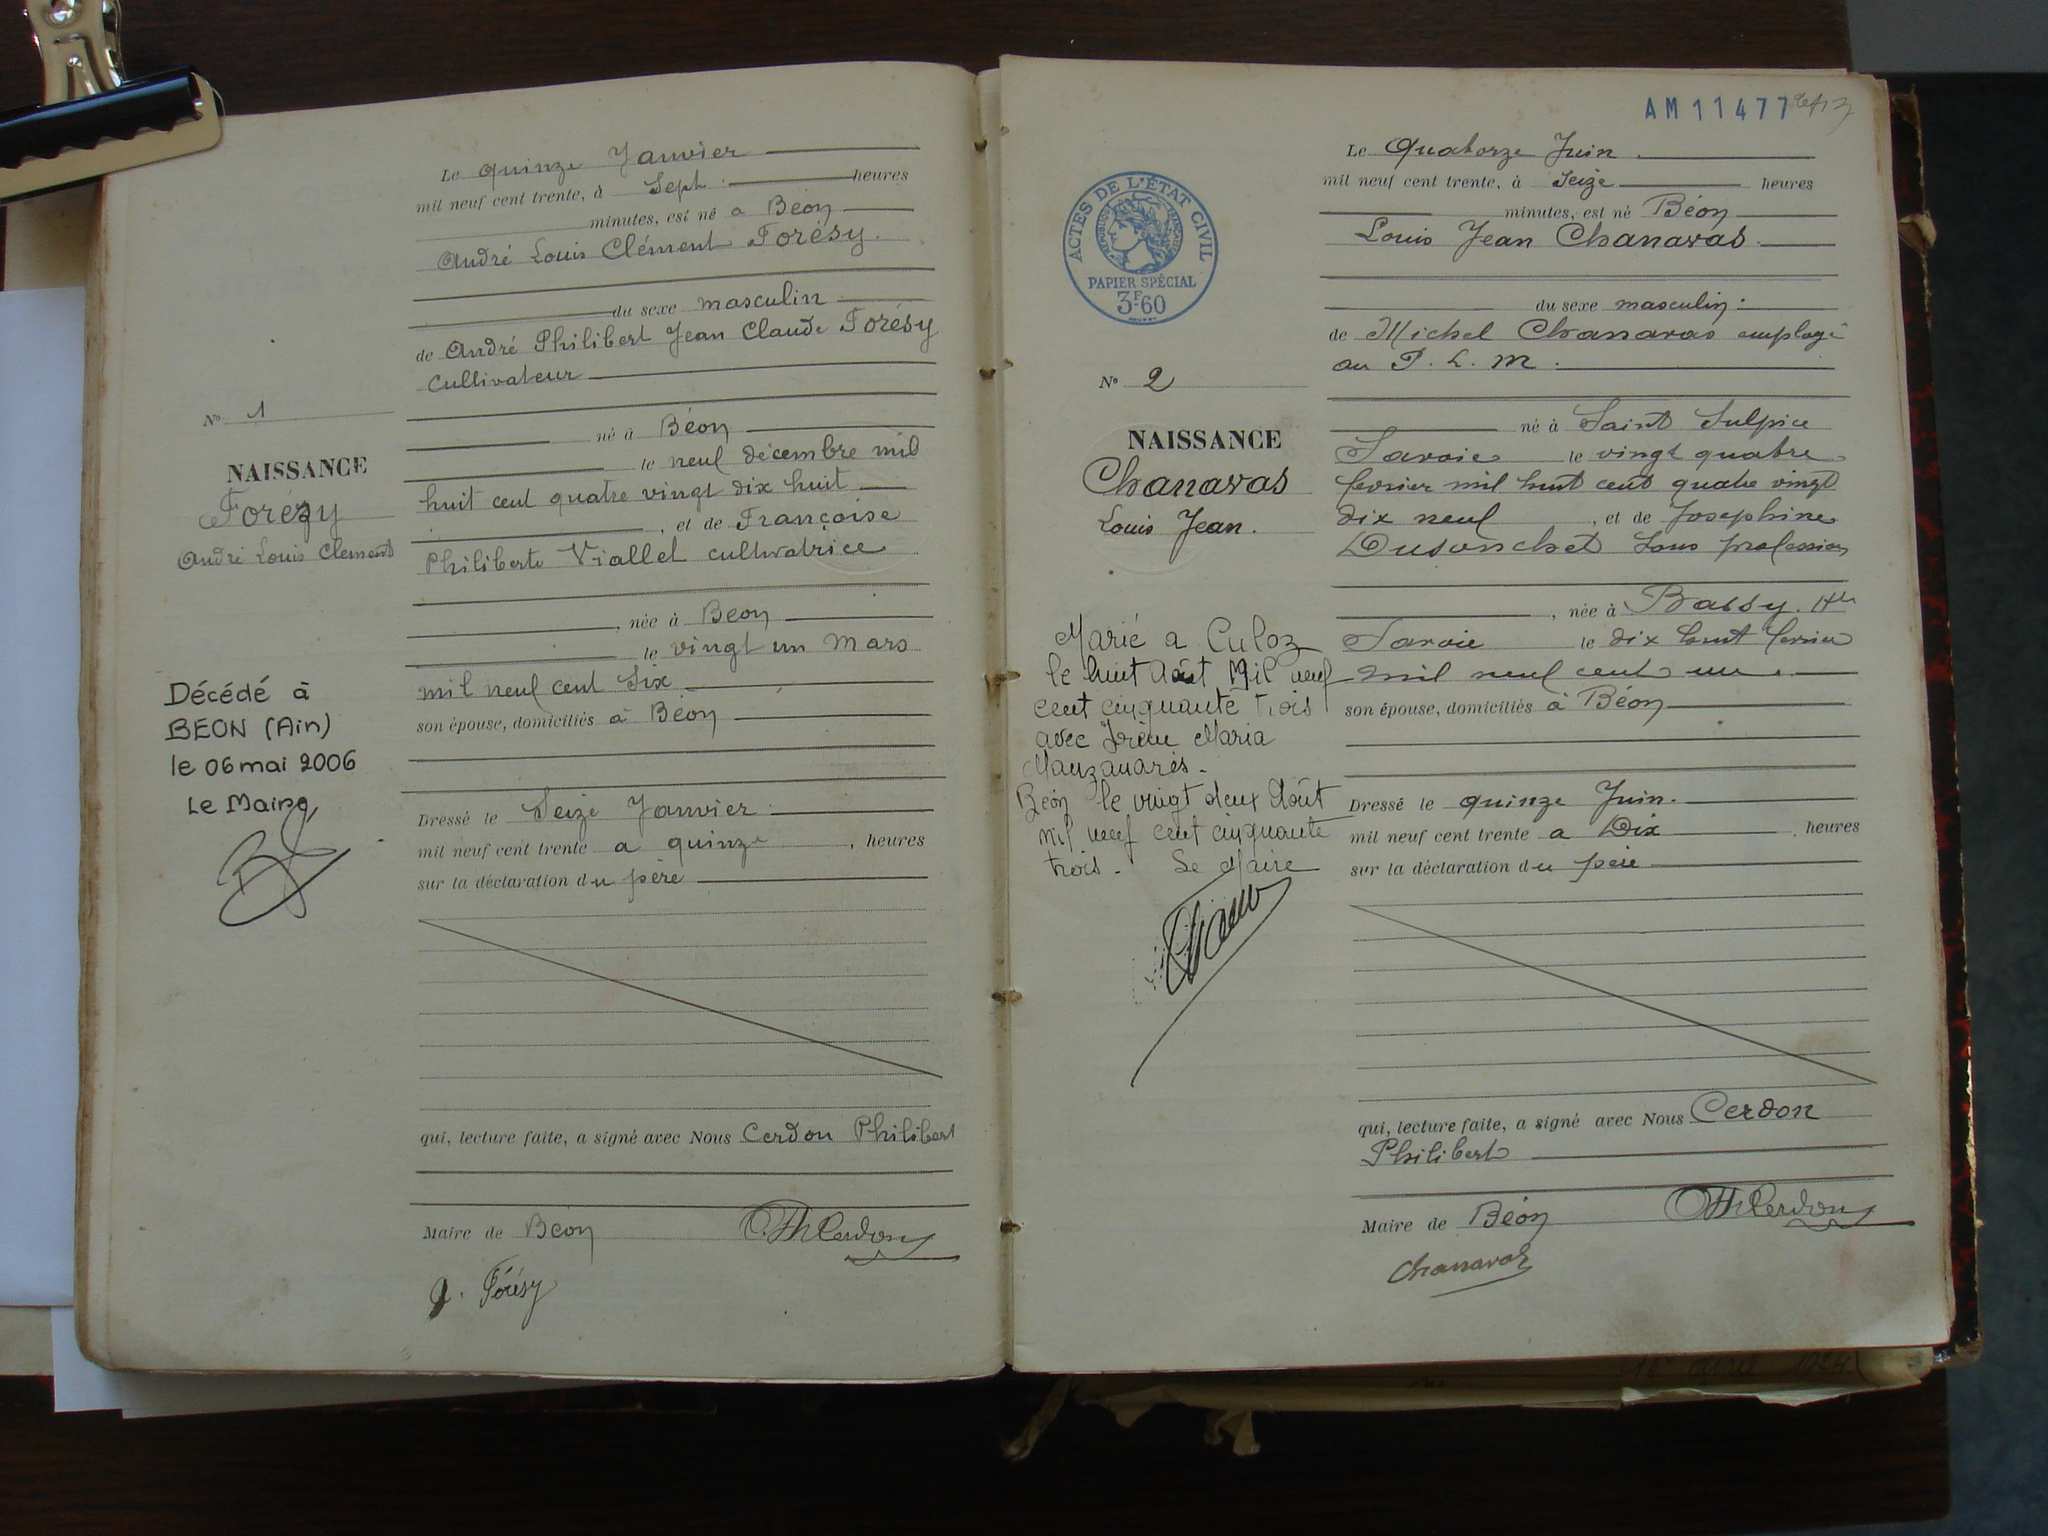 Le quinze Janvier
mil neuf cent trente, à Sept heures
minutes, est né a Béon
André Louis Clément Forésy.
du sexe masculin
de André Philibert Jean Claude Forésy
cultivateur
né à Béon
le neuf décembre mil
huit cent quatre vingt dix huit
, et de Françoise
Philiberte Viallet cultivatrice
, née à Beon
le vingt un Mars
mil neuf cent Six
son épouse, domiciliés à Béon
Dressé le Seize Janvier
mil neuf cent trente a quinze , heures
sur la déclaration du père
qui, lecture faite, a signé avec Nous Cerdon Philibert
Maire de Béon
Ph Cerdon
Forésy
No 1
NAISSANCE
Forésy
André Louis Clément
Décédé à
BEON (Ain)
le 06 mai 2006
Le Maire
AM 11477
ACTES DE L'ÉTAT CIVIL
PAPIER SPÉCIAL
3F60
Le Quatorze Juin.
mil neuf cent trente, à Seize heures
minutes, est né Béon
Louis Jean Chanavas.
du sexe masculin.
de Michel Chanavas employé
au P. L. M.
né à Saint Sulpice
Savoie le vingt quatre
fevrier mil huit cent quatre vingt
dix neuf , et de Josephine
Dusonchet Sans profession
, née à Bassy. Hte
Savoie le dix huit fevrier
mil neuf cent un.
son épouse, domiciliés à Béon
Dressé le quinze Juin.
mil neuf cent trente a Dix , heures
sur la déclaration du père
qui, lecture faite, a signé avec Nous Cerdon
Philibert
Maire de Béon
Ph Cerdon
Chanavas
No 2
NAISSANCE
Chanavas
Louis Jean.
Marié a Culoz
le huit Août Mil neuf
cent cinquante trois
avec Irène Maria
Manzanarès.
Béon le vingt deux Août
mil neuf cent cinquante
trois. Le Maire